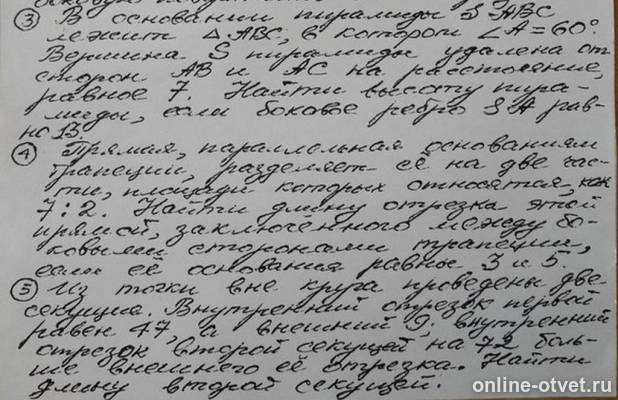 ③ В основании пирамиды SABC
лежит △ABC, в котором ∠A=60°.
Вершина S пирамиды удалена от
сторон AB и AC на расстояние,
равное 7. Найти высоту пира-
миды, если боковое ребро SA рав-
но 13.
④ Прямая, параллельная основаниям
трапеции, разделяет её на две час-
ти, площади которых относятся, как
7:2. Найти длину отрезка этой
прямой, заключённого между бо-
ковыми сторонами трапеции,
если её основания равны 3 и 5.
⑤ Из точки вне круга проведены две
секущие. Внутренний отрезок первой
равен 47, а внешний 9; внутренний
отрезок второй секущей на 72 боль-
ше внешнего её отрезка. Найти
длину второй секущей.
online-otvet.ru